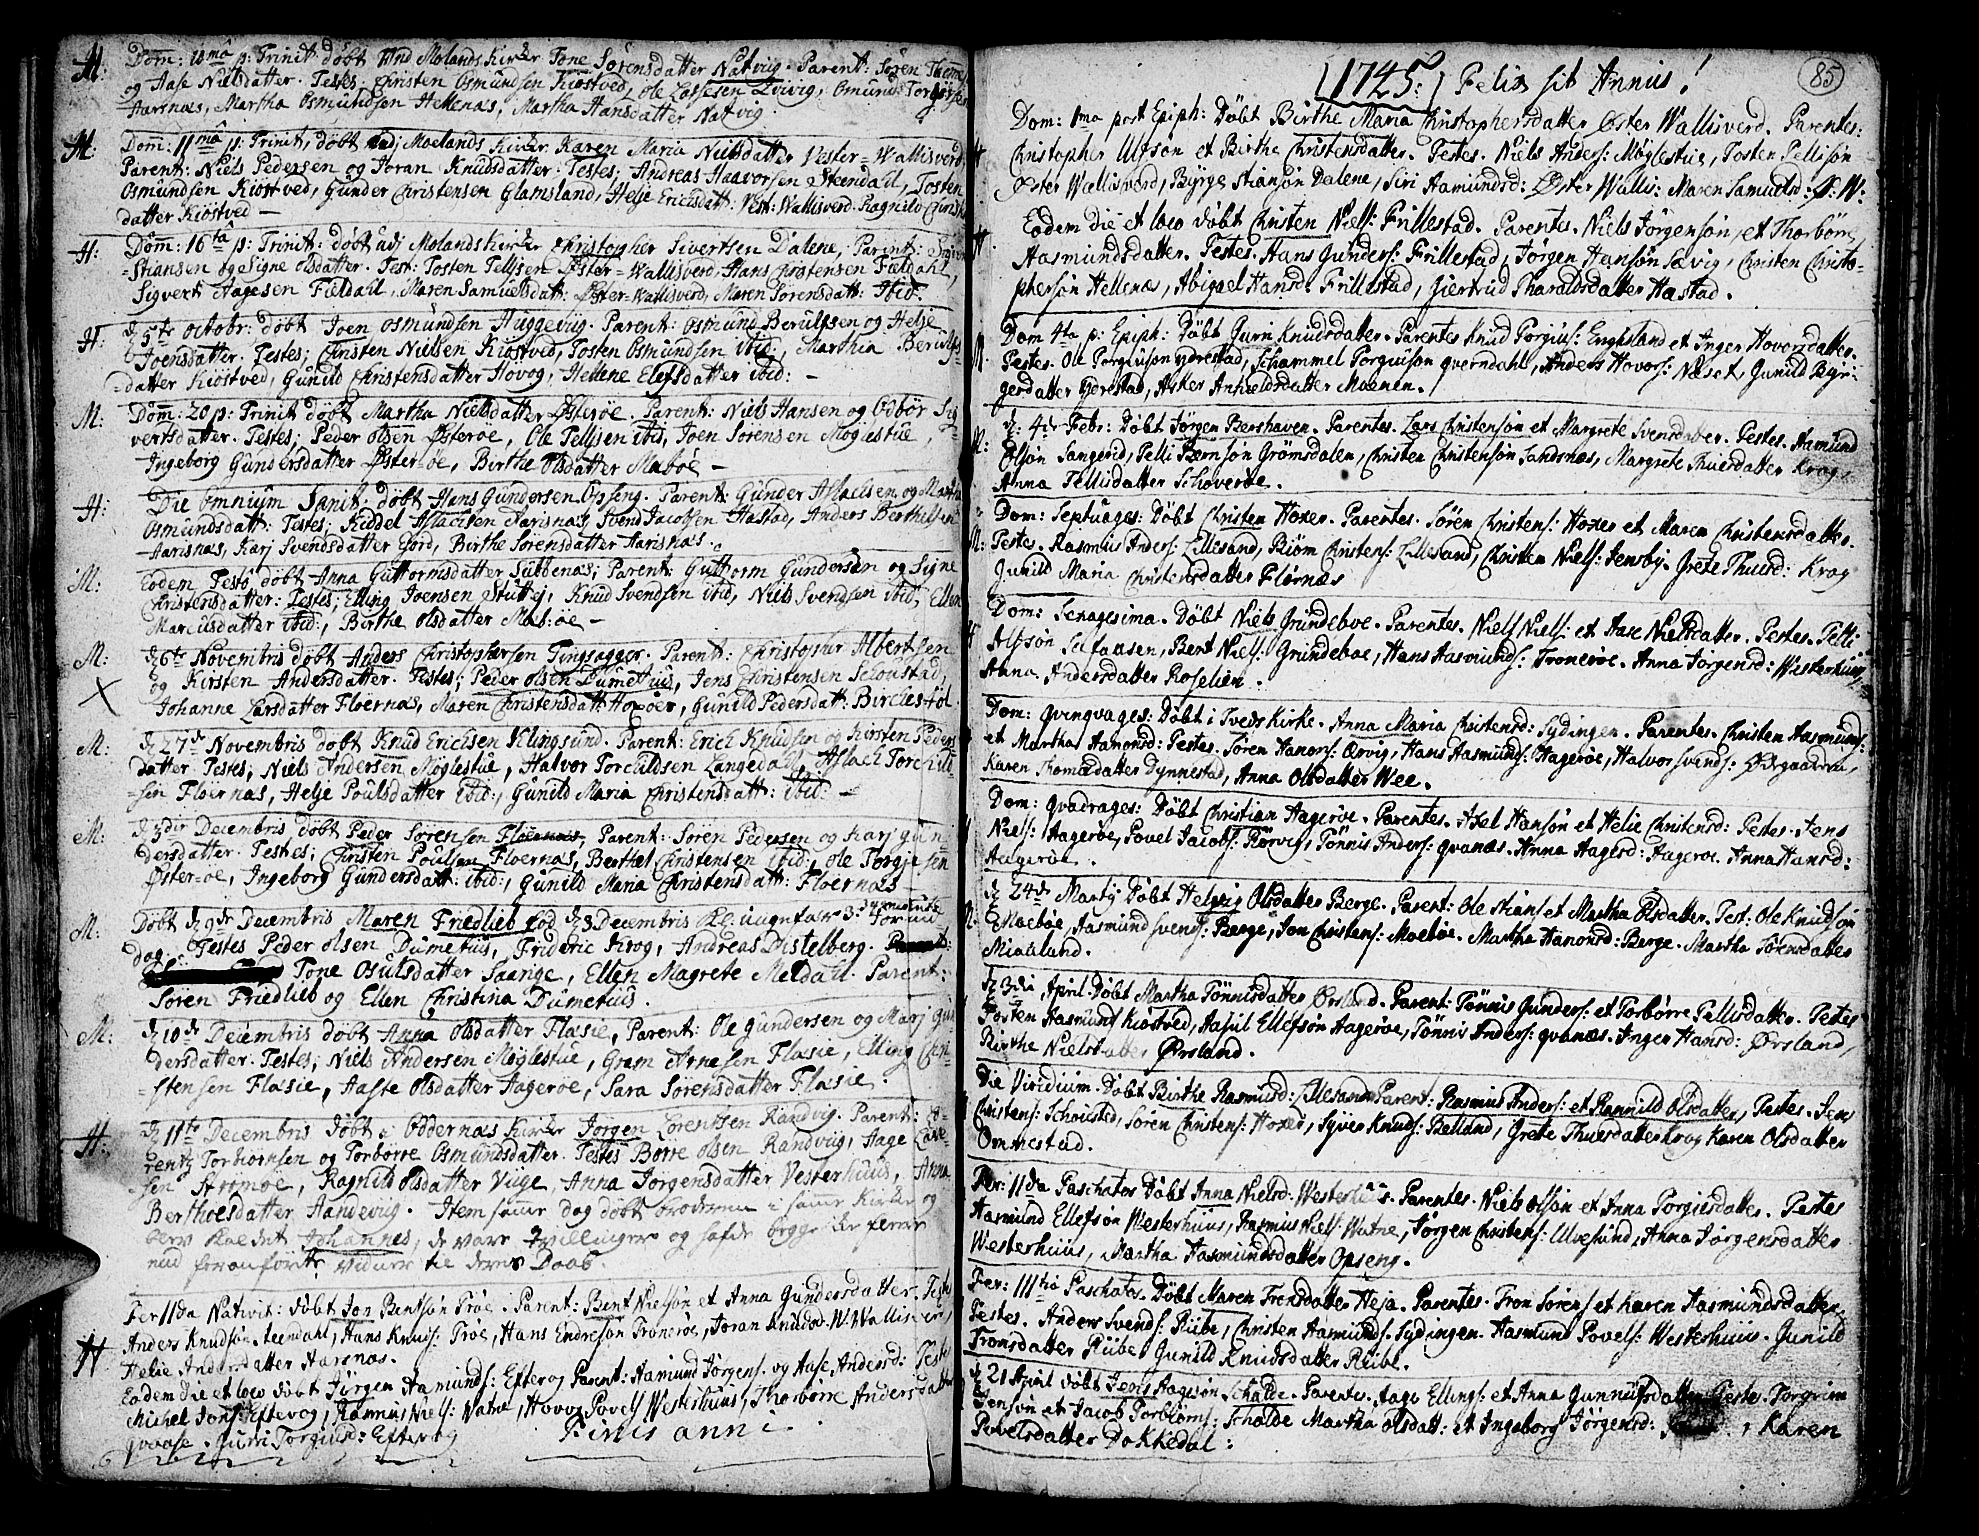 H: Dom: 10mâ p: Trinit døbt ind Molands Kircke Tone Sørensdatter Natvig. Parent: Søren
og Aase Nielsdatter. Testes, Christen Osmundsen Kiøstved, Ole Larsen Osmund
Aarsnæs, Martha Osmundsen Hellenæs, Martha Hansdatter Natvig.
H: Dom: 11mâ p: Trinit, døbt Moelands Kircke Karen Maria Nielsdatter Vester-Wallisverd.
Parent: Niels Pedersen og Joran Knudsdatter. Testes; Andreas Haavorsen Steendahl, Tosten
Osmundsen Kiøstved, Gunder Christensen Glamsland, Helje Ericksdatt: Vest: Wallisverd. Ragnild
datter Kiøstved —
H: Dom: 16tâ p: Trinit: døbt udj Molands Kircke Christopher Sivertsen Dalene, Parent:
Stiansen og Signe Olsdatter. Test: Tosten Tellisen Øster-Wallisverd, Hans Christensen Fieldahl,
Sigvert Aagesen Fieldahl, Maren Samuelsdatt: Øster-Wallisverd, Maren Sørensdatt: Ibid.
H: d 5te Octobr: døbt Joen Osmundsen Huggeviig. Parent: Osmund Berulfsen og Helje
Joensdatter. Testes; Christen Nielsen Kiøstved, Tosten Osmundsen ibid, Marthia Berulfs-
datter Kiøstved, Gunild Christensdatter Hovog, Hellene Elefsdatter ibid: —
M: Dom: 20 p: Trinit døbt Martha Nielsdatter Østerøe. Parent: Niels Hansen og Odbør Sig-
vertsdatter. Testes; Peder Olsen Østerøe, Ole Tellisen ibid, Joen Sørensen Møglestue,
Ingeborg Gundersdatter Østerøe, Birthe Olsdatter Maboe —
H: Die Omnium Sanct: døbt Hans Gundersen Opseng. Parent: Gunder Aslachsen og Martha
Osmundsdatt: Testes; Kiddel Aslachsen Aarisnæs, Svend Jacobsen Hastad, Anders Berthelsen
Aarisnæs, Karj Svendsdatter Gord, Birthe Sørensdatter Aarisnæs.
M: Eodem Festo døbt Anna Guttormsdatter Tubbenæs; Parent: Guttorm Gundersen og Signe
Christensdatter: Testes; Elling Joensen Stuttej, Knud Svendsen ibid, Niels Svendsen ibid, Ellen
Marcusdatter ibid:, Birthe Olsdatter Maboe —
M: d 6te Novembris døbt Anders Christophersen Tingsagger. Parent: Christopher Albertsen
X og Kirsten Andersdatter. Testes; Peder Olsen Dumetius, Jens Christensen Schoustad,
Johanne Larsdatter Floernæs, Maren Christensdatt Hoxøer, Gunild Pedersdatt: Birchestøl.
M: d 27de Novembris døbt Knud Erichsen Klingsund. Parent: Erich Knudsen og Kirsten Peders
datter. Testes; Niels Andersen Møglestue, Halvor Torchildsen Langedal, Aslach Torchild-
sen Floernæs, Helje Poulsdatter ibid:, Gunild Maria Christensdatt: ibid: —
M: d 3die Decembris døbt Peder Sørensen Floernæs, Parent: Søren Pedersen og Karj Gun-
dersdatter. Testes; Christen Poulsen Floernæs, Berthel Christensen ibid:, Ole Torgjesen
Øster-øe, Ingeborg Gundersdatt: ibid:, Gunild Maria Christensdatt: Floernæs —
M: Døbt d 9de Decembris Maren Friedlieb fød d 3 Decembris
dag. Testes Peder Olsen Dumetius, Frideric Krog, Andreas Distelberg.
Tone Osulsdatter Saange, Ellen Magrete Meldahl. Parent:
Søren Friedlieb og Ellen Christina Dumetius.
M: d 10de Decembris døbt Anna Olsdatter Flasie, Parent: Ole Gundersen og Marj Gun
dersdatter. Testes; Niels Andersen Møglestue, Gram Arnesen Flasie, Elling Chri-
stensen Flasie, Aaste Olsdatter Aagerøe, Sara Sørensdatter Flasie.
H: d 11te Decembris døbt i Oddernæs Kircke Jørgen Lorentsen Randvig. Parent: Lo-
rentz Torbiørnsen og Torbørre Osmundsdatter. Testes Børre Olsen Randviig, Aage
sen Strømøe, Ragnild Olsdatter Viige, Anna Jørgensdatter Vesterhuus, Anna
Berthelsdatter Handeviig. Item samme dag døbt broderen i samme Kircke og
blev kaldet Johannes, de vare Tvillinger og hafde begge de
nud foranførte vidner til deres Daab.
Fer: 11da Nativit: døbt Jon Bentsøn Trøe. Parent: Bent Nielsøn et Anna Gundersdatter. Testes
Anders Knudsøn Steendahl, Hans Knuds: Trøe, Hans Endresøn Tronerøe, Joran Knudsd. W: Wallisverd,
H Helie Andersdatter Aarsnæs.
Eodem die et loco døbt Jørgen Aamunds: Eftevog Parent: Aamund Jørgens. og Aase Andersd: Testes
Michel Jons: Eftevog, Rasmus Niels: Watne, Hovor Povels Westerhuus, Thorbørre Andersdatter
Qvaase. Gurri Torgiusd: Eftevog
Finis anni
85
(1745:) Felix sit Annus!
Dom: 1ma post Epiph: Døbt Birthe Maria Christophersdatter Øster Wallisverd. Parentes:
H Christopher Ulfsøn et Birthe Christensdatter. Testes. Niels Anders: Møglestue, Tosten Tellisøn
Øster Wallisverd, Byrge Stiansøn Dalene, Siri Aamundsd: Øster Wallis: Maren Samuelsd: Ø: W.
Eodem die et loco døbt Christen Niels: Frillestad. Parentes. Niels Jørgensøn, et Thorbøre
H Aasmundsdatter. Testes. Hans Gunders: Frillestad, Jørgen Hansøn Sævig, Christen Christo-
phersøn Hellenæs, Abigael Hansd: Frillestad, Giertrud Tharaldsdatter Hastad.
Dom 4ta p: Epiph: Døbt Gurri Knudsdatter. Parentes Knud Torgius: Engheland et Inger Hovorsdatter.
M Testes. Ole Torgiusøn Ydrestad, Schammel Torgiusøn Qverndahl, Anders Hovors: Næset, Gunild Byr-
gersdatter Ydrestad, Asker Anhieldsdatter Moenen.
d: 4de Febr: Døbt Jørgen Bershaven. Parentes. Lars Christensøn et Margrete Svensdatter. Testes. Aamund
M: Olsøn Sangerid, Telli Biørnsøn Grømsdalen, Christen Christensøn Sandsnæs, Margrete Thuesdatter Krog,
Anna Tellisdatter Schoverøe.
Dom: Septuages: Døbt Christen Hoxer. Parentes. Søren Christens: Hoxer et Maren Christensdatter.
M: Testes. Rasmus Anders: Lillesand, Biørn Christens: Lillesand, Christen Niels: Jensby. Grete Thuesd: Krog
Gunild Maria Christensdatter Flørnæs
Dom: Sexagesima. Døbt Niels Grundeboe. Parentes. Niels Niels: et Aase Nielsdatter. Testes. Telli:
H Alfsøn Bent Niels: Grundeboe, Hans Aasmunds: Tronerøe. Anna Jørgensd: Westerhuus,
Anna Andersdatter Roselien.
Dom: Qvinqvages: Døbt i Tveds Kirke. Anna Maria Christensd: Sydingen. Parentes. Christen Aasmunds:
et Martha Hanonsd: Testes. Søren Hanons: Qvorvig, Hans Aasmunds: Aagerøe, Halvor Svends: Ødegaarden,
Karen Thomædatter Dynnestad, Anna Olsdatter Wee.
Dom: Qvadrages: Døbt Christian Aagerøe. Parentes. Axel Hansøn et Helie Christensd: Testes. Jens
Niels: Aagerøe, Povel Jacobs: Rørvig, Tønnis Anders: Qvanæs. Anna Aagesd: Aagerøe. Anna Hansd:
Aagerøe.
d 24de Martij Døbt Helgvig Olsdatter Berge. Parent: Ole Stians: et Martha Olsdatter. Test: Ole Knudsøn
Moebøe, Aasmund Svends: Berge, Jon Christens: Moebøe. Martha Hanonsd: Berge. Martha Sørensdatter
Midtlund.
d 3die April. Døbt Martha Tønnisdatter Ørsland. Parent: Tønnis Gunders: et Torbørre Tellisdatter. Testes
Tosten Aasmunds Kiøstved, Aasul Ellefsøn Aagerøe, Tønnis Anders: Qvanæs. Inger Hansd: Ørsland,
Birthe Nielsdatter Ørsland.
Die Viridium. Døbt Birthe Rasmusd: Lillesand. Parent: Rasmus Anders: et Rannild Olsdatter, Testes. Jens
Christens: Schousted, Søren Christens: Hoxer, Syver Knuds: Belland, Grete Thuesdatter Krog Karen Olsdatter
Omnestad.
Fer: 11da Paschatos Døbt Anna Nielsd: Westerhuus. Parentes. Niels Olsøn et Anna Torgiusdatter. Testes
Aasmund Ellefsøn Westerhuus, Rasmus Niels: Watne, Jørgen Christens: Ulvesund, Anna Jørgensdatter
Westerhuus, Martha Aasmundsdatter Opseng.
Fer: 111tia Paschatos. Døbt Maren Tronsdatter Heja. Parentes. Tron Sørens: et Karen Aasmundsdatter,
Testes. Anders Svends: Riibe, Christen Aasmunds: Sydingen. Aasmund Povels: Westerhuus. Gunild
Tromsdatter Riibe, Gunild Knudsdatter Riibe.
d 21 April døbt Jens Aagesøn Schalde. Parentes. Aage Ellings: et Anna Gunnufsdatter Testes. Torgrim
Jensøn et Jacob Torbiørns: Schalde Martha Olsdatt: et Ingeborg Jørgensd: , Karen
Povelsdatter Dokkedal: